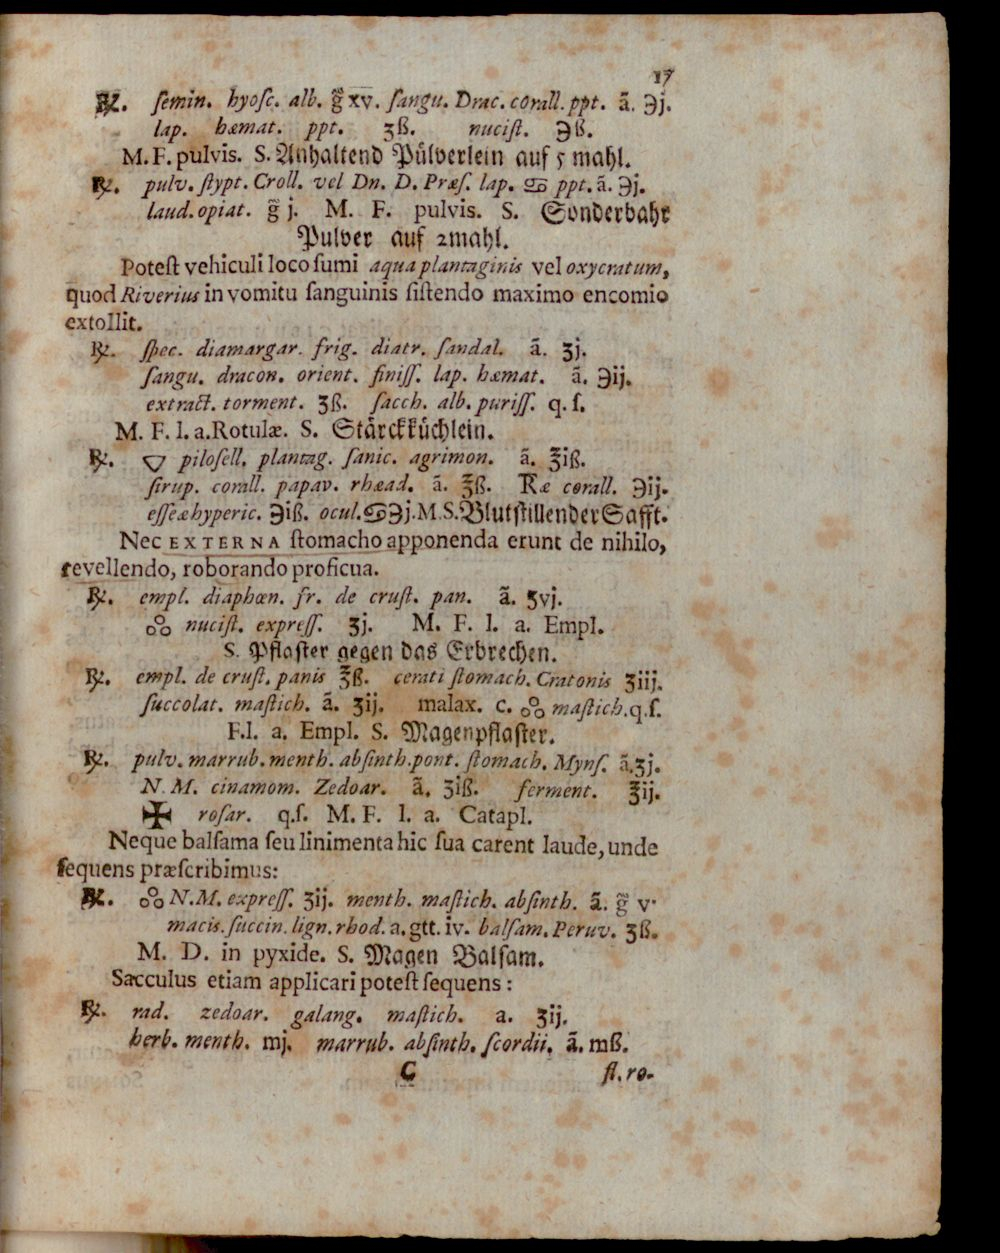 17
℞. ſemin. hyoſc. alb. g̃ xv. ſangu. Drac. corall. ppt. ã. ℈j.
lap. hæmat. ppt. ʒß. nuciſt. ℈ß.
M. F. pulvis. S. Anhaltend Pülverlein auf 5 mahl.
℞. pulv. ſtypt. Croll. vel Dn. D. Præſ. lap. ♋ ppt. ã. ℈j.
laud. opiat. g̃ j. M. F. pulvis. S. Sonderbahr
Pulver auf 2mahl.
Poteſt vehiculi loco ſumi aqua plantaginis vel oxycratum,
quod Riverius in vomitu ſanguinis ſiſtendo maximo encomio
extollit.
℞. ſpec. diamargar. frig. diatr. ſandal. ã. ʒj.
ſangu. dracon. orient. finiſſ. lap. hæmat. ã. ℈ij.
extract. torment. ʒß. ſacch. alb. puriſſ. q. ſ.
M. F. l. a. Rotulæ. S. Stärckküchlein.
℞. 🜄 piloſell. plantag. ſanic. agrimon. ã. ℥iß.
ſirup. corall. papav. rhæad. ã. ℥ß. Ræ corall. ℈ij.
eſſeæ hyperic. ℈iß. ocul. ♋ ℈j. M. S. Blutſtillender Safft.
Nec EXTERNA ſtomacho apponenda erunt de nihilo,
revellendo, roborando proficua.
℞. empl. diaphœn. fr. de cruſt. pan. ã. ʒvj.
ஃ nuciſt. expreſſ. ʒj. M. F. l. a. Empl.
S. Pflaſter gegen das Erbrechen.
℞. empl. de cruſt. panis ℥ß. cerati ſtomach. Cratonis ʒiij.
ſuccolat. maſtich. ã. ʒij. malax. c. ஃ maſtich. q. ſ.
F. l. a. Empl. S. Magenpflaſter.
℞. pulv. marrub. menth. abſinth. pont. ſtomach. Mynſ. ã. ʒj.
N. M. cinamom. Zedoar. ã. ʒiß. ferment. ℥ij.
✠ roſar. q. ſ. M. F. l. a. Catapl.
Neque balſama ſeu linimenta hic ſua carent laude, unde
ſequens præſcribimus:
℞. ஃ N. M. expreſſ. ʒij. menth. maſtich. abſinth. ã. g̃ v.
macis. ſuccin. lign. rhod. a. gtt. iv. balſam. Peruv. ʒß.
M. D. in pyxide. S. Magen Balſam.
Sacculus etiam applicari poteſt ſequens:
℞. rad. zedoar. galang. maſtich. a. ʒij.
herb. menth. mj. marrub. abſinth. ſcordii. ã. mß.
C fl. ro-